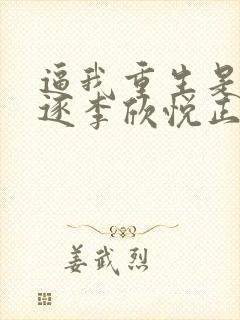 逼我重生是
逐李欣悦正
姜武烈